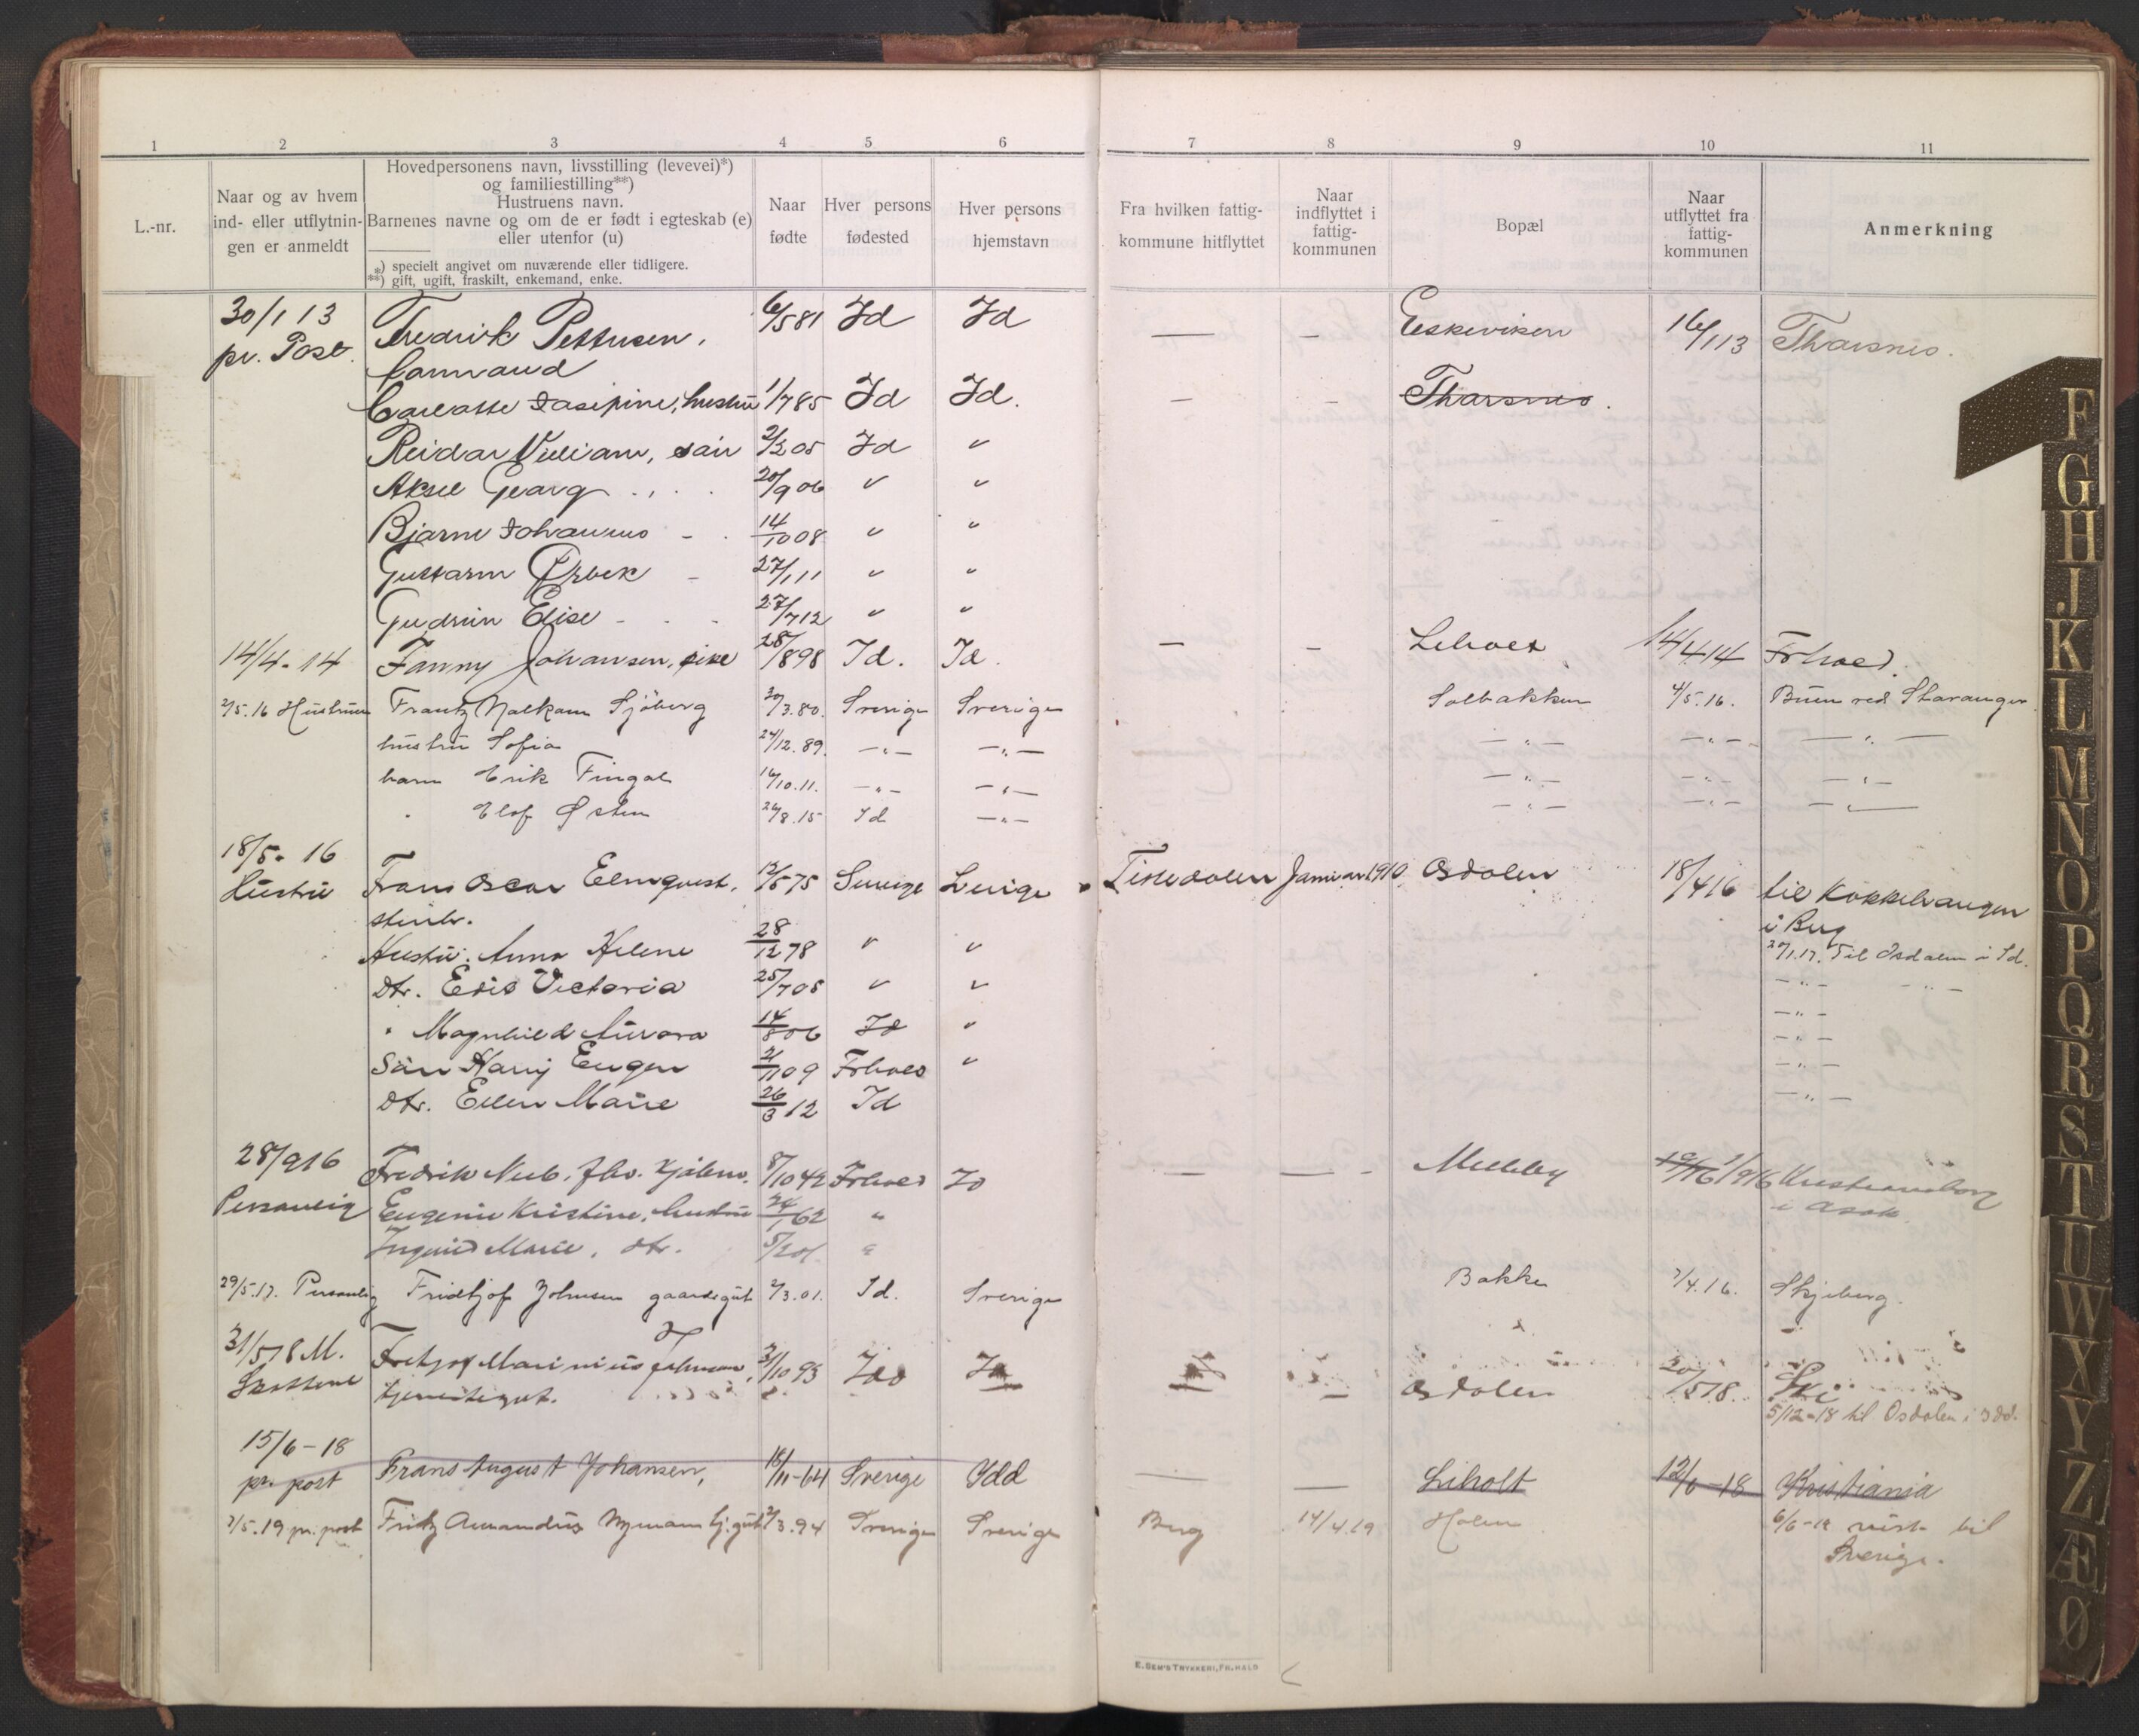 1 2 3 4 5 6 7 8 9 10 11
L.-nr.
Naar og av hvem
ind- eller utflytnin-
gen er anmeldt
Hovedpersonens navn, livsstilling (levevei)*)
og familiestilling**)
Hustruens navn.
Barnenes navne og om de er født i egteskab (e)
eller utenfor (u)
*) specielt angivet om nuværende eller tidligere.
**) gift, ugift, fraskilt, enkemand, enke.
Naar
fødte
Hver persons
fødested
Hver persons
hjemstavn
Fra hvilken fattig-
kommune hitflyttet
Naar
indflyttet i
fattig-
kommunen
Bopæl
Naar
utflyttet fra
fattig-
kommunen
Anmerkning
30/1 13 Fredrik Pettersen, 6/5 81 Id Id — — Eskeviken 16/1 13 Thorsnes.
pr. Post.
Josefine, hustru 1/7 85 Id Id. — — Thorsnes.
Reidar William, søn 2/2 05 Id "
Aksel Georg 20/9 06 " "
Bjarne Johannes 14/10 08 " "
Guttorm Ørbek 27/1 11 " "
Gudrun Elise 27/7 12 " "
14/4-14 Fanny Johansen, pike 28/8 98 Id. Id. — — Liholt 14/4 14 Frhald.
2/5.16 Hustruen Frantz Sjöberg 30/3.80. Sverige Sverige Solbakken 4/5.16. Buen ved Stavanger
hustru Sofia 24/12.89. —"— —"— —"— —"— —"—
barn Erik Fingal 16/10.11. —"— —"— —"— —"— —"—
" Elof Østen 26/8.15 Id —"— —"— —"— —"—
18/5-16
Hustru Frans Oscar Elmqvist, 12/5 75 Sverige Sverige Tistedalen Januar 1910 Osdolen 18/4 16 til Kokkehaugen
stenh. i Berg
Hustru: Anna Helene 28/12 78 " " 20/1.17. Til Osdalen i Id.
Dtr. Edis Victoria 25/7 05 " " —"— —"—
" Magnhild Aurora 14/8 06 Id " —"—
Søn Harry Eugen 2/11 09 Frhald " —"—
dtr. Ellen Marie 26/3 12 Id —"—
28/9 16 Fredrik 8/10 42 Frhald Id — — Melleby 1/9 16 Kristiansborg
Personlig Eugenie Kristine, hustru 24/1 62 " i Asak.
Ingrid Marie, dtr. "
29/5.17. Personlig Fridtjof Johnsen gaardsgut 2/3.01. Id. Sverige Bakke 2/4.16. Skjeberg.
31/5 18 M. Fritjof Marinius Johnsen, 31/10 93 Idd Id — Osdolen 20/5 18. Ski
tjenestegut. 5/12-18 til Osdolen i Idd.
15/6-18
pr. post Frans August Johansen, 18/11-64 Sverige Idd — — Liholt 12/6-18 Kristiania
2/5.19 pr. post Fritz Amandus Nyman tj.gut 2/3.94 Sverige Sverige Berg 14/4.19 Holen 6/6-19 reist til
Sverige.
E. SEM'S TRYKKERI, FR.HALD
F
G
H
J
K
L
M
N
O
P
Q
R
S
T
U
W
X
Y
Z
Æ
Ø